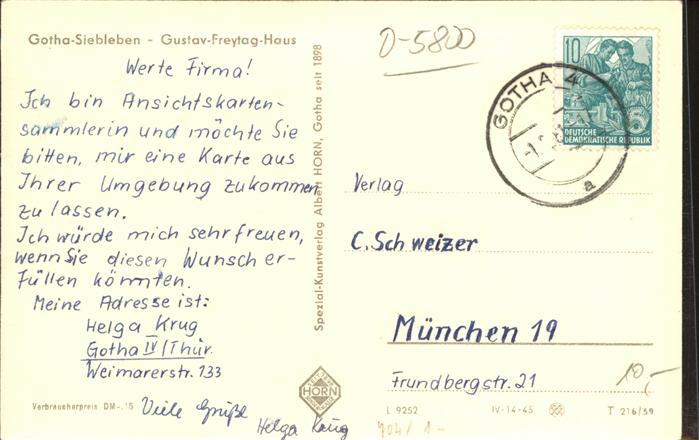 Gotha-Siebleben - Gustav-Freytag-Haus
Werte Firma!
Ich bin Ansichtskarten-
sammlerin und möchte Sie
bitten, mir eine Karte aus
Ihrer Umgebung zukommen
zu lassen.
Ich würde mich sehr freuen,
wenn Sie diesen Wunsch er-
füllen könnten.
Meine Adresse ist:
Helga Krug
Gotha IV/Thür.
Weimarerstr. 133
Viele Grüße
Helga Krug
Verbraucherpreis DM-.15
Spezial-Kunstverlag Albert HORN, Gotha seit 1898
HORN
D-5800
10
DEUTSCHE
DEMOKRATISCHE REPUBLIK
GOTHA 4
a
Verlag
C. Schweizer
München 19
Frundbergstr. 21
10,-
L 9252
IV-14-45
T 216/59
704/ 1-